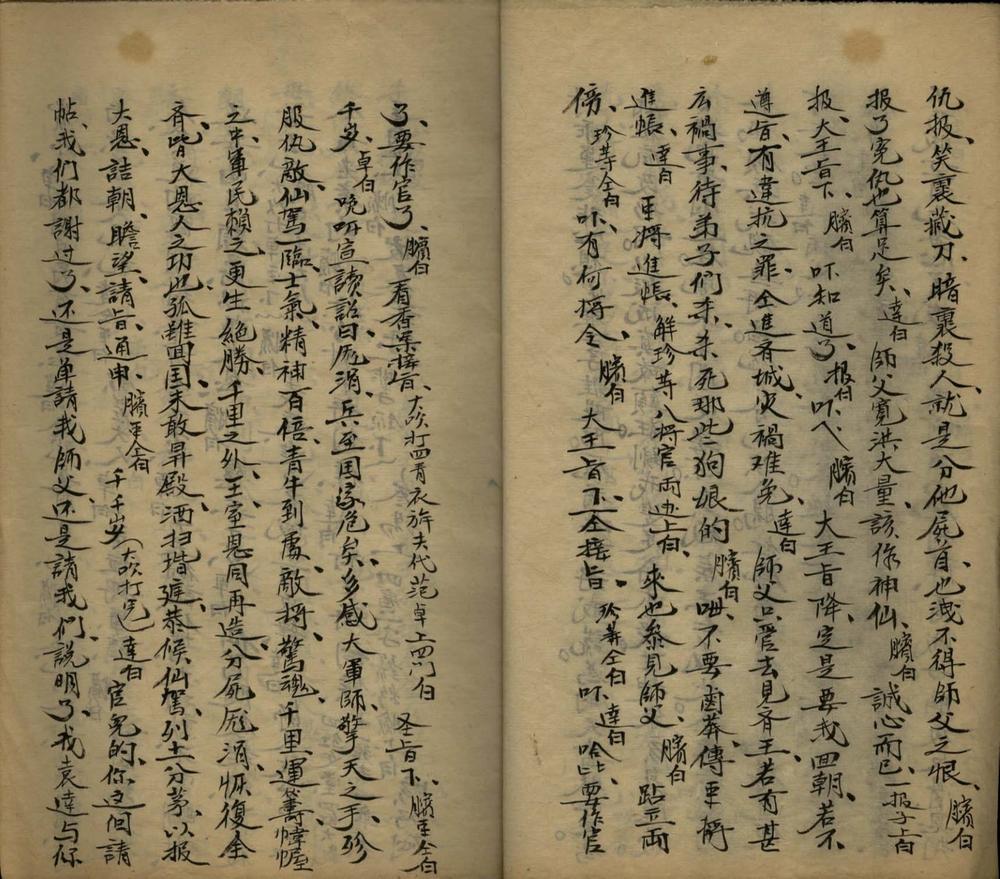 仇报、笑裏藏刀、暗裏殺人、就是分他屍首、也洩不得師父之恨、臏白
报了寃仇也算足矣、達白 師父寬洪大量、該係神仙、臏白 誠心而已、报子上白
报、大王旨下、臏白 吓知道了、报白 吓、臏白 大王旨降、定是要我回朝、若不
遵旨、有違抗之罪、仝進齊城、灾禍难免、達白 師父只管去見齊王、若有甚
広禍事、待弟子們杀、杀死那些狗娘的、臏白 唓、不要鹵莽、傳王将
進帳、達白 王将進帳、解珍等八将官両边上白、來也、叅見師父、臏白 跕立両
傍、珍等仝白 吓、有何将令、臏白 大王旨下、仝接旨、珍等仝白 吓、達白 哈、要作官
了、要作官了、臏白 看香案接旨、大吹打四青衣旂夫代范卓上四门白 圣旨下、臏王仝白
千岁、卓白 跪听宣讀、詔曰、厖涓兵至、国家危矣、多感大軍師、擎天之手、殄
服仇敵、仙駕一臨、士氣精神百倍、青牛到處、敵将驚魂、千里運籌幃幄
之中、軍民賴之更生、絶勝千里之外、王室恩同再造、分屍厖涓、恢復全
齊、皆大恩人之功也、孤雖回国、未敢昇殿、洒扫堦遅、恭候仙駕、列土分茅、以报
大恩、詰朝瞻望、請旨通申、臏王仝白 千千岁、大吹打完 達白 官児的、你这间請
帖、我们都謝过了、还是单請我師父、还是請我们、説明了、我袁達与你